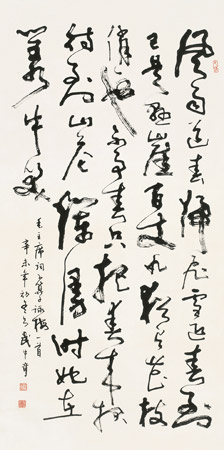 風雨送春歸飛雪迎春到
已是懸崖百丈冰猶有花枝
俏俏也不爭春只把春來報
待到山花爛漫時她在
叢中笑
毛主席詞卜算子詠梅一首
辛未年初冬武中奇